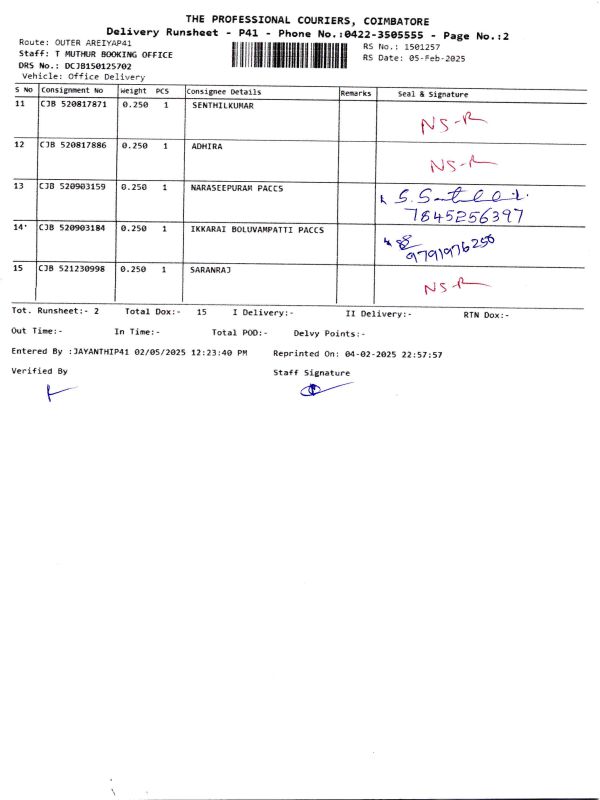 THE PROFESSIONAL COURIERS, COIMBATORE
Delivery Runsheet - P41 - Phone No.:0422-3505555 - Page No.:2
Route: OUTER AREIYAP41
RS No.: 1501257
Staff: T MUTHUR BOOKING OFFICE
RS Date: 05-Feb-2025
DRS No.: DCJB150125702
Vehicle: Office Delivery
S No Consignment No Weight PCS Consignee Details Remarks Seal & Signature
11 CJB 520817871 0.250 1 SENTHILKUMAR NS-R
12 CJB 520817886 0.250 1 ADHIRA NS-R
13 CJB 520903159 0.250 1 NARASEEPURAM PACCS
7845256397
14 CJB 520903184 0.250 1 IKKARAI BOLUVAMPATTI PACCS
9791976256
15 CJB 521230998 0.250 1 SARANRAJ NS-R
Tot. Runsheet:- 2 Total Dox:- 15 I Delivery:- II Delivery:- RTN Dox:-
Out Time:- In Time:- Total POD:- Delvy Points:-
Entered By :JAYANTHIP41 02/05/2025 12:23:40 PM Reprinted On: 04-02-2025 22:57:57
Verified By Staff Signature